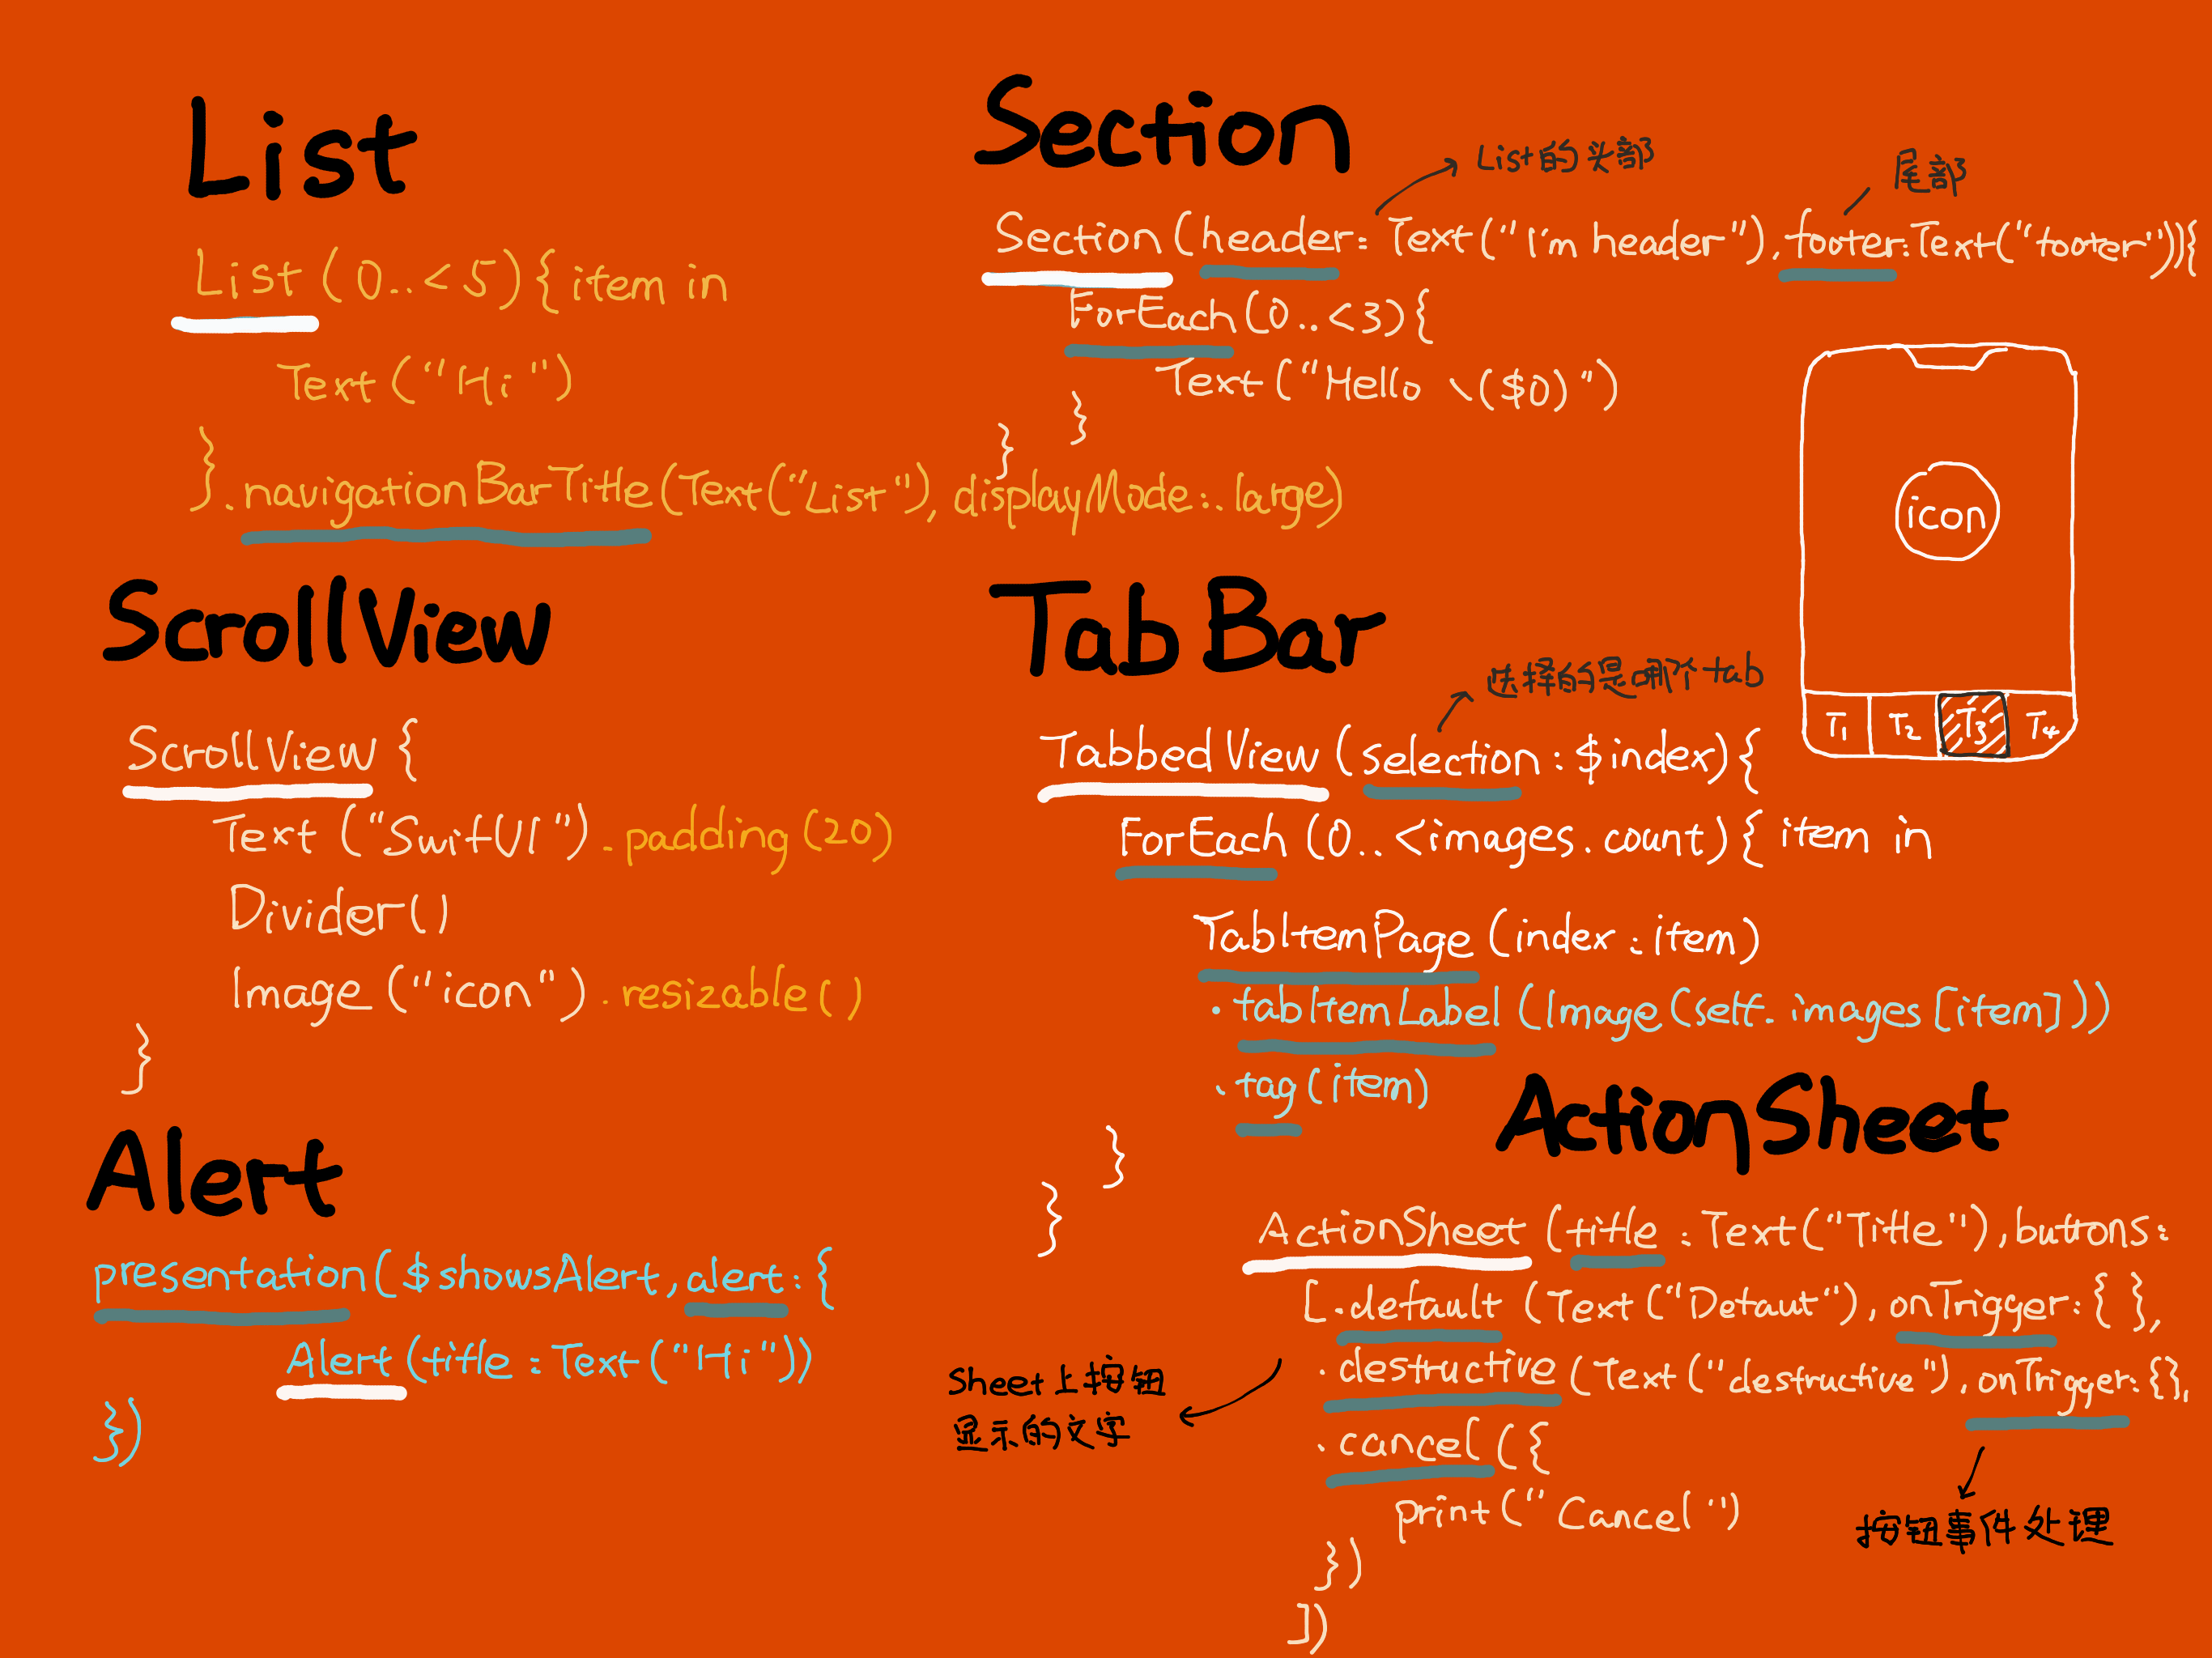 List
List (0..<5){ item in
Text ("Hi")
}.navigationBarTitle(Text("List"), displayMode:.large)
Section
List的头部
尾部
Section (header: Text("I'm header"), footer:Text("footer")){
ForEach(0..<3){
Text("Hello \($0)")
}
}
icon
T1 T2 T3 T4
ScrollView
ScrollView {
Text ("SwiftUI").padding(20)
Divider()
Image ("icon").resizable()
}
TabBar
选择的是哪个tab
TabbedView (selection:$index){
ForEach (0..<images.count){ item in
TabItemPage (index:item)
.tabItemLabel (Image(self.images[item]))
.tag(item)
}
}
Alert
presentation($showsAlert, alert:{
Alert(title:Text("Hi"))
})
ActionSheet
ActionSheet (title:Text("Title"),buttons:
[.default (Text("Defaut"), onTrigger:{ },
.destructive (Text("destructive"), onTrigger:{},
.cancel ({
print("Cancel")
})
])
Sheet上按钮
显示的文字
按钮事件处理